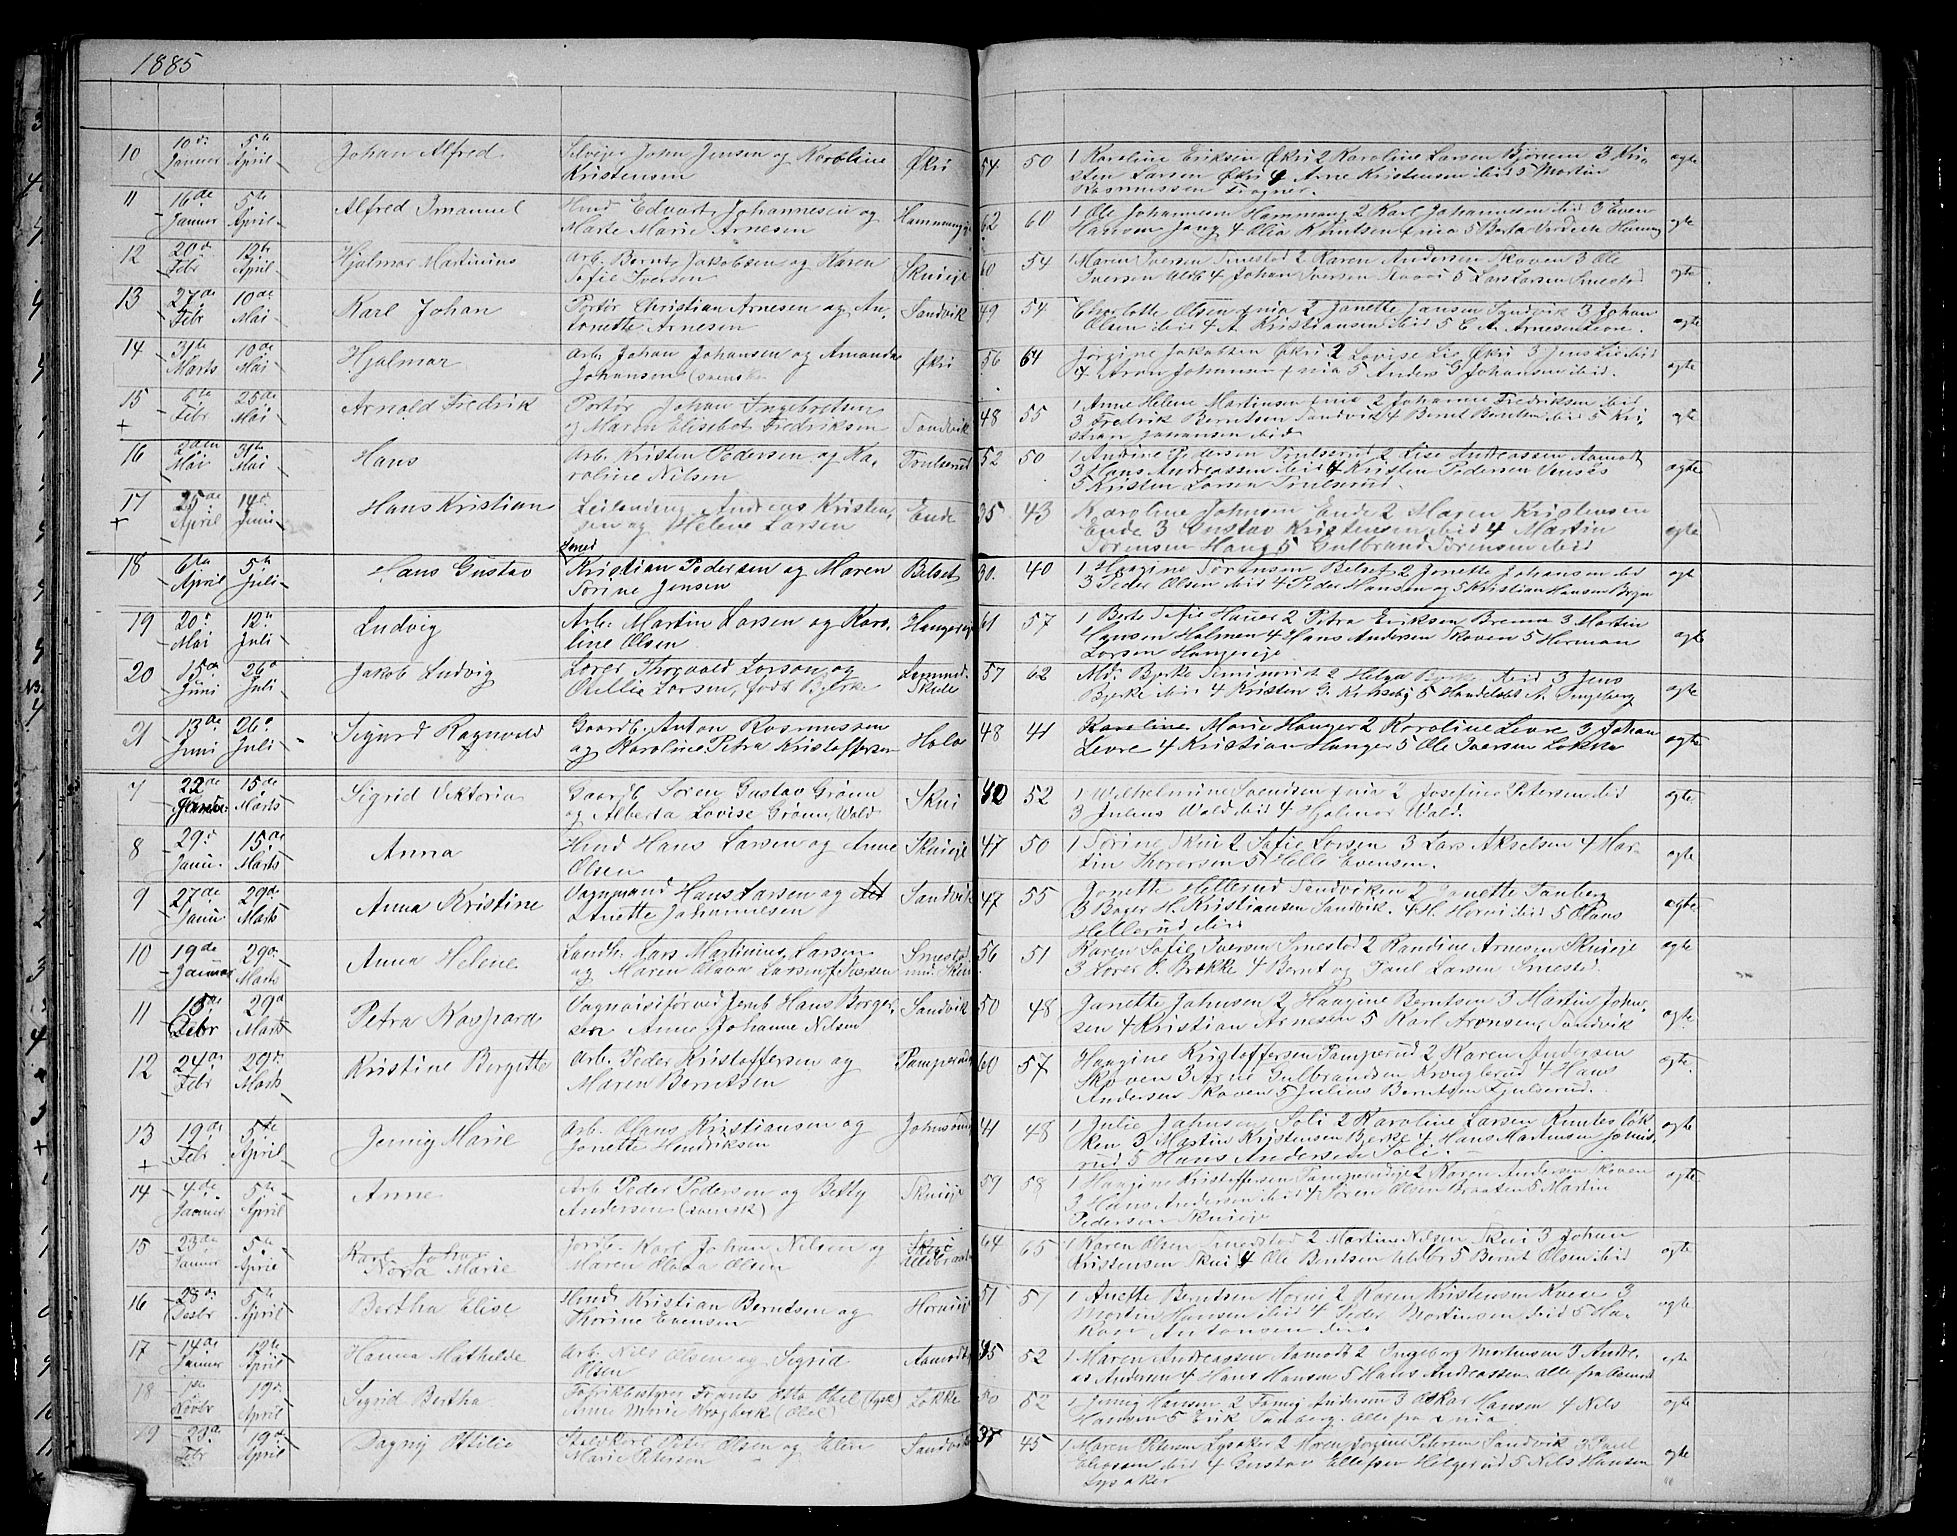 1885
10 10de Januar 5te April Johan Alfred Selveier John Jensen og Karoline Kristensen Økri 54 50 1 Karoline Eriksen Økri 2 Karoline Larsen Bjørnem 3 Kri-
sten Larsen Økri 4 Arne Kristensen ibid 5 Martin
Rasmussen Frogner. ægte
11 16de Januar 5te April Alfred Imanuel Hmd Edvart Johannesen og
Marte Marie Arnesen Hammang 62 60 1 Ole Johannesen Hammang 2 Karl Johannesen ibid 3 Even
Hansen Jong 4 Olia Knutsen 5 Berta ægte
12 20de Febr 12te April Hjalmar Martinius Arb. Bernt Jakobsen og Karen
Sofie Iversen Skuieje 60 54 1 Maren Iversen Smestad 2 Karen Andersen Skoven 3 Ole
Iversen 4 Johan Iversen 5 Lars Larsen Smestad ægte
13 27de Febr 10de Mai Karl Johan Portør Christian Arnesen og An-
tonette Arnesen Sandvik 49 54 1 Charlotte Olsen 2 Janette Jansen Sandvik 3 Johan
Olsen ibid 4 A. Kristiansen ibid 5 C. A. Arnesen ægte
14 31te Marts 10de Mai Hjalmar Arb. Johan Johansen og Amanda
Johansen (svenske Økri 56 64 Jørgine Jakobsen Økri 2 Lovise Lie Økri 3 Jens Lie ibid
4 Aron Johansen 5 Anders Johansen ibid. ægte
15 + 6te Febr 25de Mai Arnold Fredrik Portør Johan Ingebretsen
og Maren Elisebet Fredriksen Sandvik 48 55 1 Anne Helene Martinsen 2 Johanne Fredriksen ibid
3 Fredrik Berntsen Sandvik 4 Bernt Berntsen ibid 5 Kri-
stian Johansen ibid ægte
16 2den Mai 31te Mai Hans Arb. Kristen Pedersen og Ka-
roline Nilsen Trulsrud 52 50 1 Andrine Pedersen Trulserud 2 Lise Andreassen Aamodt
3 Hans Andreassen ibid 4 Kristen Pedersen
5 Kristen Larsen Trulsrud. ægte
17 + 25de April 14de Juni Hans Kristian Leilænding Andreas Kristen-
sen og Helene Larsen Ende 35 43 Karoline Johnsen Ende 2 Maren Kristensen
Ende 3 Gustav Kristensen ibid 4 Martin
Sørensen Haug 5 Gulbrand Sørensen ibid ægte
18 6te April 5te Juli Hans Gustav
Kristian Pedersen og Maren
Torine Jensen Belset 30 40 1 Haagine Sørensen Belset 2 Jonette Johansen ibid
3 Peder Olsen ibid 4 Peder Hansen og 5 Kristian Hansen ægte
19 20de Mai 12te Juli Ludvig Arb. Martin Larsen og Karo-
line Olsen Hangereje 61 57 1 Berte Sofie Hauer 2 Petra Eriksen Brenna 3 Martin
Hansen Holmen 4 Hans Andersen Skoven 5 Herman
Larsen Hangereje ægte
20 15de Juni 26de Juli Jakob Ludvig Lærer Thorvald Larsen og
Millie Larsen, født Bjerke Lommedal Skole 57 62 Md. Bjerke Seminarist 2 Helga Bjerke ibid 3 Jens
Bjerke ibid 4 Kristen G. 5 Handelsbt A. Ingeberg ægte
21 13de Juni 26de Juli Sigurd Ragnvald Gaardb. Anton Rasmussen
og Karoline Petra Kristoffersen Holo 48 41 Karoline Marie Hanger 2 Karoline Levre 3 Johan
Levre 4 Kristian Hanger 5 Ole Iversen Løkka ægte
7 22de Januar 15de Marts Sigrid Viktoria Gaardb. Søren Gustav Grønn
og Alberta Lovise Grønn, Wald Skui 40 52 1 Wilhelmine Svendsen 2 Josefine Petersen ibid
3 Julius Wald ibid 4 Hjalmar Wald. ægte
8 29de Janu. 15de Marts Anna Hmd Hans Larsen og Anne
Olsen Skuieje 47 50 1 Torine Skui 2 Sofie Larsen 3 Lars Akselsen 4 Mar-
tin Thoresen 5 Helle Evensen. ægte
9 27de Janu. 29de Marts Anna Kristine Vognmand Hans Larsen og
Anette Johannesen Sandvik 47 55 Jonette Hellerud Sandviken 2 Janette Tanberg
3 Bager H. Kristiansen Sandvik. 4 H. Horni ibid 5 Olaus
Hellerud ibid ægte
10 19de Januar 29de Marts Anna Helene Landh. Lars Martinius Larsen
og Maren Olava Larsen f. Iversen Smestad und. Skui 56 51 Karen Sofie Iversen Smestad 2 Randine Arnesen Skuieje
3 Lærer O. Brække 4 Bernt og Paul Larsen Smestad. ægte
11 15de Febr 29de Marts Petra Kaspara Vognvisitør ved Jernb Hans Borger-
sen Anne Johanne Nilsen Sandvik 50 48 Janette Johnsen 2 Haagine Berntsen 3 Martin John-
sen 4 Kristian Arnesen 5 Karl Aronsen, Sandvik ægte
12 24de Febr 29de Marts Kristine Birgitte Arb. Peder Kristoffersen og
Maren Berntsen Pamperud 60 57 Haagine Kristoffersen Pamperud 2 Karen Andersen
Skoven 3 Arne Gulbrandsen Kronglerud 4 Hans
Andersen Skoven 5 Julius Berntsen Fjulserud. ægte
13 + 19de Febr 5te April Jenny Marie Arb. Olaus Kristiansen og
Jonette Hendriksen Johnsrud 41 48 1 Julie Johnsen Toli 2 Karoline Larsen Kundesløk
ken 3 Martin Kristensen Bjerke 4 Hans Martinsen Johns-
rud 5 Hans Andersen Toli. ægte
14 4de Januar 5te April Anne Arb. Peder Pedersen og Betty
Andersen (svensk) Skuieje 59 58 1 Haagine Kristoffersen Pamperudeje 2 Karen Andersen Skoven
3 Hans Andersen ibid 4 Søren Olsen Braaten 5 Martin
Pedersen Skuieje ægte
15 23de Januar 5te April Karl Johan
Nora Marie Jordb. Karl Johan Nilsen og
Maren Olava Olsen Skui 64 65 1 Karen Olsen Smestad 2 Martine Nilsen Skui 3 Johan
Kristensen Skui 4 Ole Berntsen 5 Bernt Olsen ibid ægte
16 28de Desbr 5te April Bertha Elise Hmd Kristian Berntsen og
Thorine Evensen Hornieje 51 51 1 Anette Berntsen Horni 2 Karen Kristensen 3
Martin Hansen ibid 4 Peder Mortinsen ibid 5 Ha-
kon Antonsen ibid ægte
17 14de Januar 12te April Hanna Mathilde Arb. Nils Olsen og Sigrid
Olsen Aamodt 45 52 1 Maren Andreassen Aamodt 2 Ingeborg Mortensen 3 Andre-
as Andersen 4 Hans Hansen 5 Hans Andreassen alle fra Aamodt ægte
18 1ste Novbr 19de April Sigrid Bertha Fabrikbestyrer Frants Otto Obel (tysk)
Anne Marie Krogbæk (Obel) Løkke 50 52 1 Jenny Hansen 2 Fanny Andersen 3 Oskar Hansen 4 Nils
Hansen 5 Erik Tanberg. alle fra ægte
19 23de Febr 19de April Dagny Otilie Staldkarl Peter Olsen og Elen
Marie Petersen Sandvik 37 45 1 Maren Petersen Lysaker 2 Maren Jørgine Petersen Sandvik 3 Paul
Eliassen ibid 4 Gustav Ellefsen Helgerud 5 Nils Hansen
Lysaker ægte